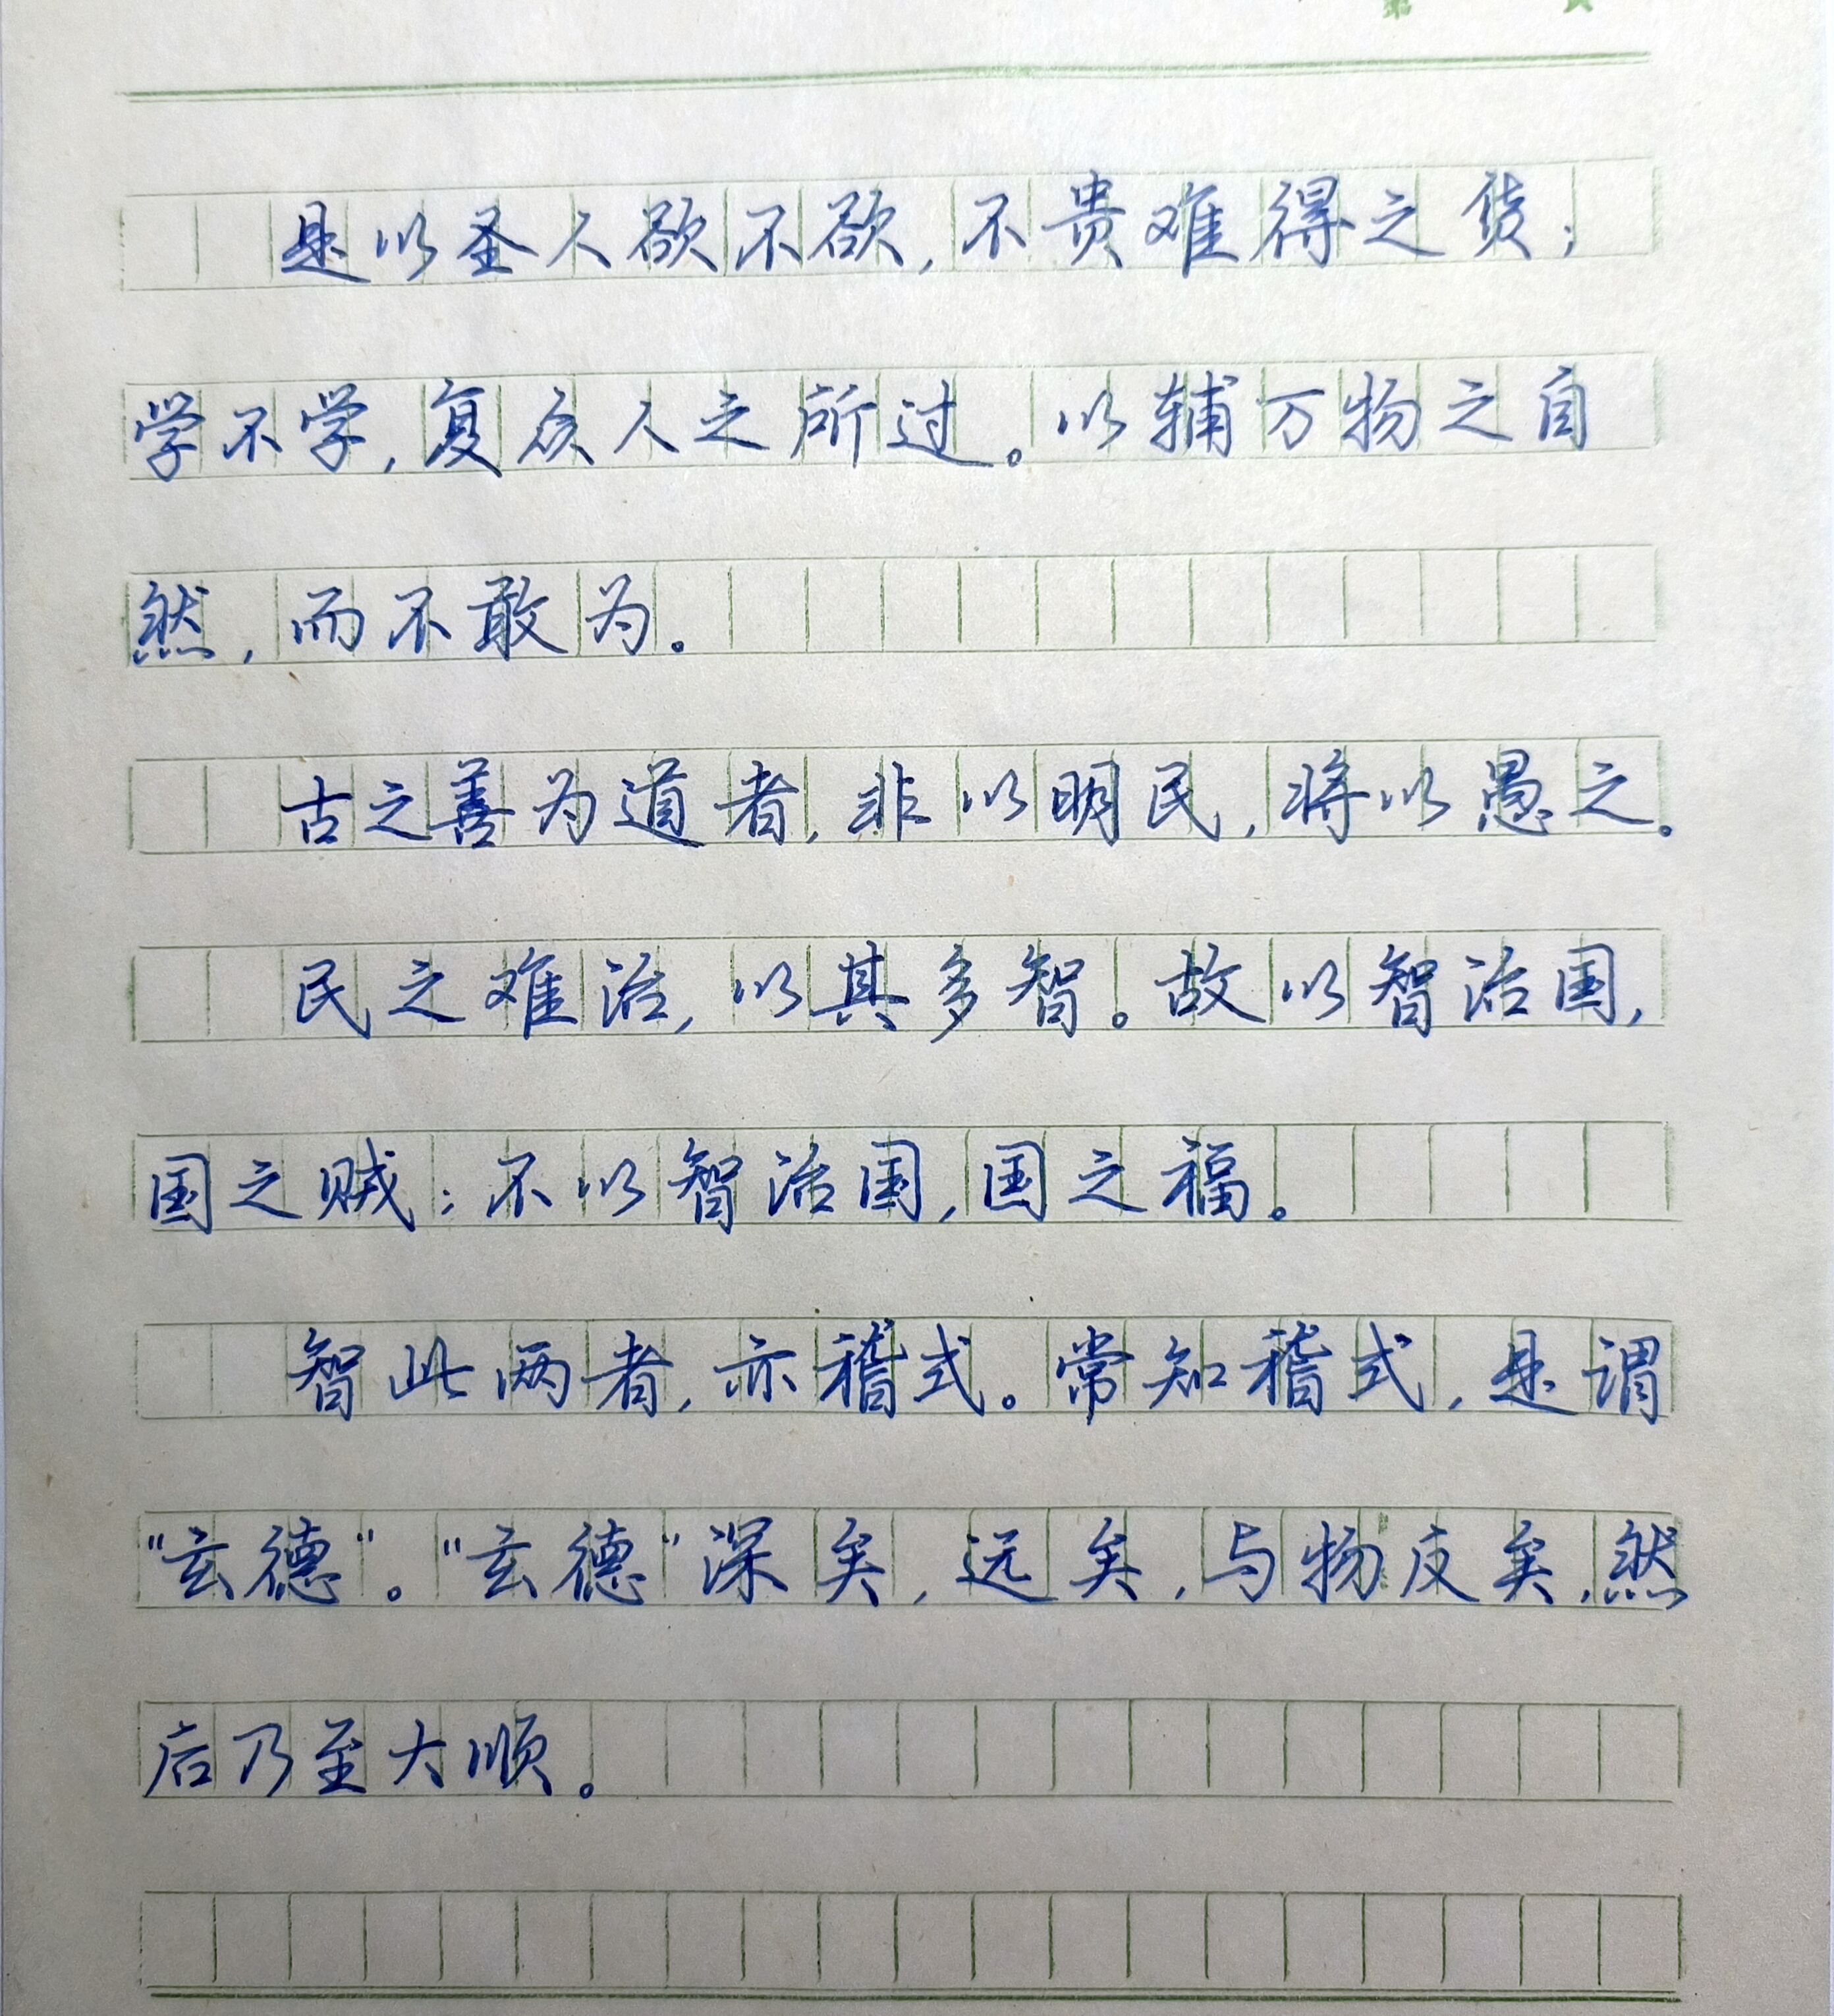 是以圣人欲不欲,不贵难得之货;
学不学,复众人之所过。以辅万物之自
然,而不敢为。
古之善为道者,非以明民,将以愚之。
民之难治,以其多智。故以智治国,
国之贼;不以智治国,国之福。
智此两者,亦稽式。常知稽式,是谓
"玄德"。"玄德"深矣,远矣,与物反矣,然
后乃至大顺。